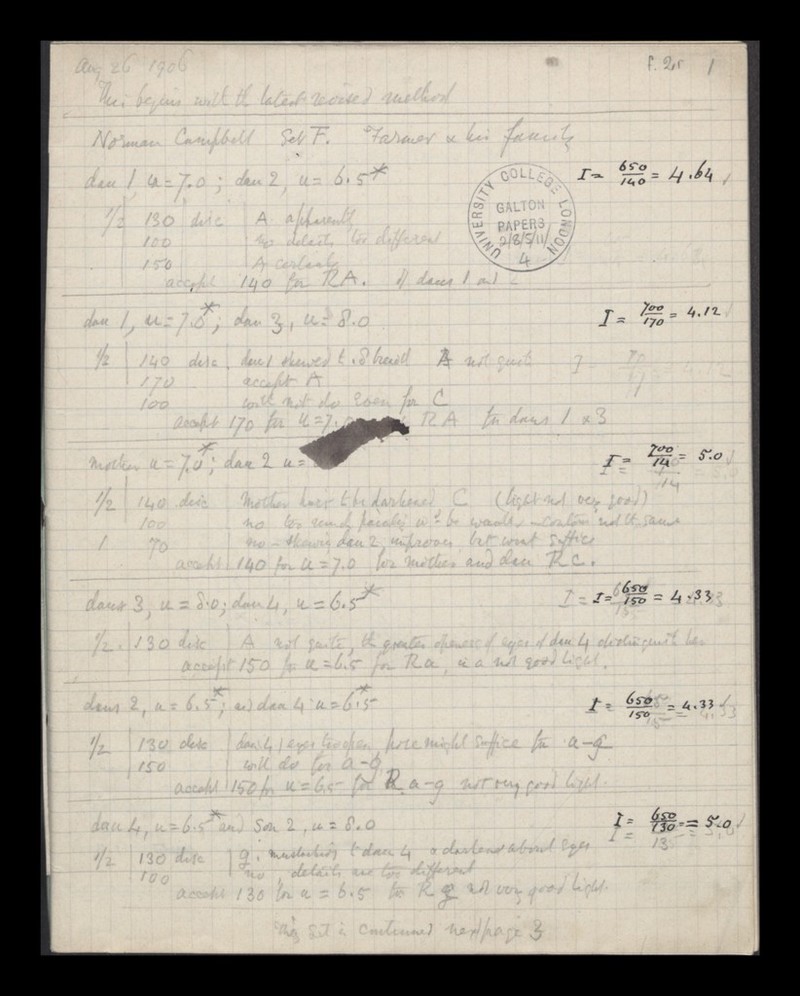 Aug 26 1906
f. 2r 1
This begins with the latest revised method
Norman Campbell Set F. Farmer & his family
dau 1, u = 7.0 ; dau 2, u = 6.5*
I = 650/140 = 4.64
UNIVERSITY COLLEGE LONDON
GALTON PAPERS
2/8/5/11/
4
1/2 130 disc A apparently
100 no details too different
150 A certainly
accept 140 for RA. if daus 1 and
dau 1, u = 7.0*; dau 3, u = 8.0
I = 700/170 = 4.12
1/2 140 disc. dau 1 skewed to A not quite
170 accept A
100 will not do even for C
accept 170 for u = 7. RA for daus 1 & 3
mother u = 7.0*; dau 2 u =
I = 700/14 = 5.0
1/2 140 disc Mother has to be darkened C (light not very good)
100 no too much
1 70 no – skewing dau 2 improves but wont suffice
accept 140 for u = 7.0 for mother and dau RC.
daur 3, u = 8.0; dau 4, u = 6.5*
I = 650/150 = 4.33
1/2 130 disc A not quite, the greater openness of eyes of dau 4 distinguish her
accept 150 for u = 6.5 for Ra, in a not good light.
daur 2, u = 6.5*; and dau 4 u = 6.5*
I = 650/150 = 4.33
1/2 130 disc dau 4 eyes too open, here might suffice for a–g
150 will do for a–g
accept 150 for u = 6.5 for R a–g not very good light.
dau 4, u = 6.5* and Son 2, u = 8.0
I = 650/130 = 5.0
1/2 130 disc g. to dau 4 & darkened about eyes
100 no, details are too different
accept 130 for u = 6.5 for R g not very good light.
This set is continued next page 3